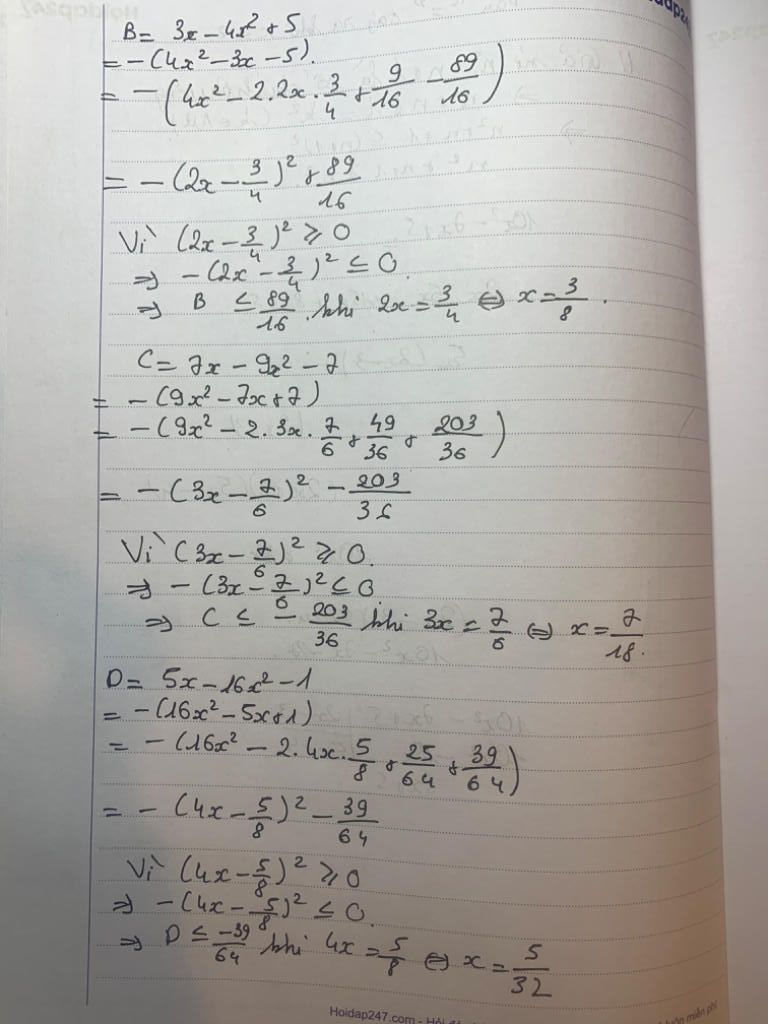 B = 3x - 4x² + 5
= -(4x² - 3x - 5).
= -(4x² - 2.2x . 3/4 + 9/16 - 89/16)
= -(2x - 3/4)² + 89/16
Vì (2x - 3/4)² ≥ 0
⇒ -(2x - 3/4)² ≤ 0.
⇒ B ≤ 89/16 khi 2x = 3/4 ⇔ x = 3/8.
C = 7x - 9x² - 7
= -(9x² - 7x + 7)
= -(9x² - 2.3x . 7/6 + 49/36 + 203/36)
= -(3x - 7/6)² - 203/36
Vì (3x - 7/6)² ≥ 0.
⇒ -(3x - 7/6)² ≤ 0
⇒ C ≤ -203/36 khi 3x = 7/6 ⇔ x = 7/18.
D = 5x - 16x² - 1
= -(16x² - 5x + 1)
= -(16x² - 2.4x . 5/8 + 25/64 + 39/64)
= -(4x - 5/8)² - 39/64
Vì (4x - 5/8)² ≥ 0
⇒ -(4x - 5/8)² ≤ 0.
⇒ D ≤ -39/64 khi 4x = 5/8 ⇔ x = 5/32
Hoidap247.com - Hỏi
miễn phí